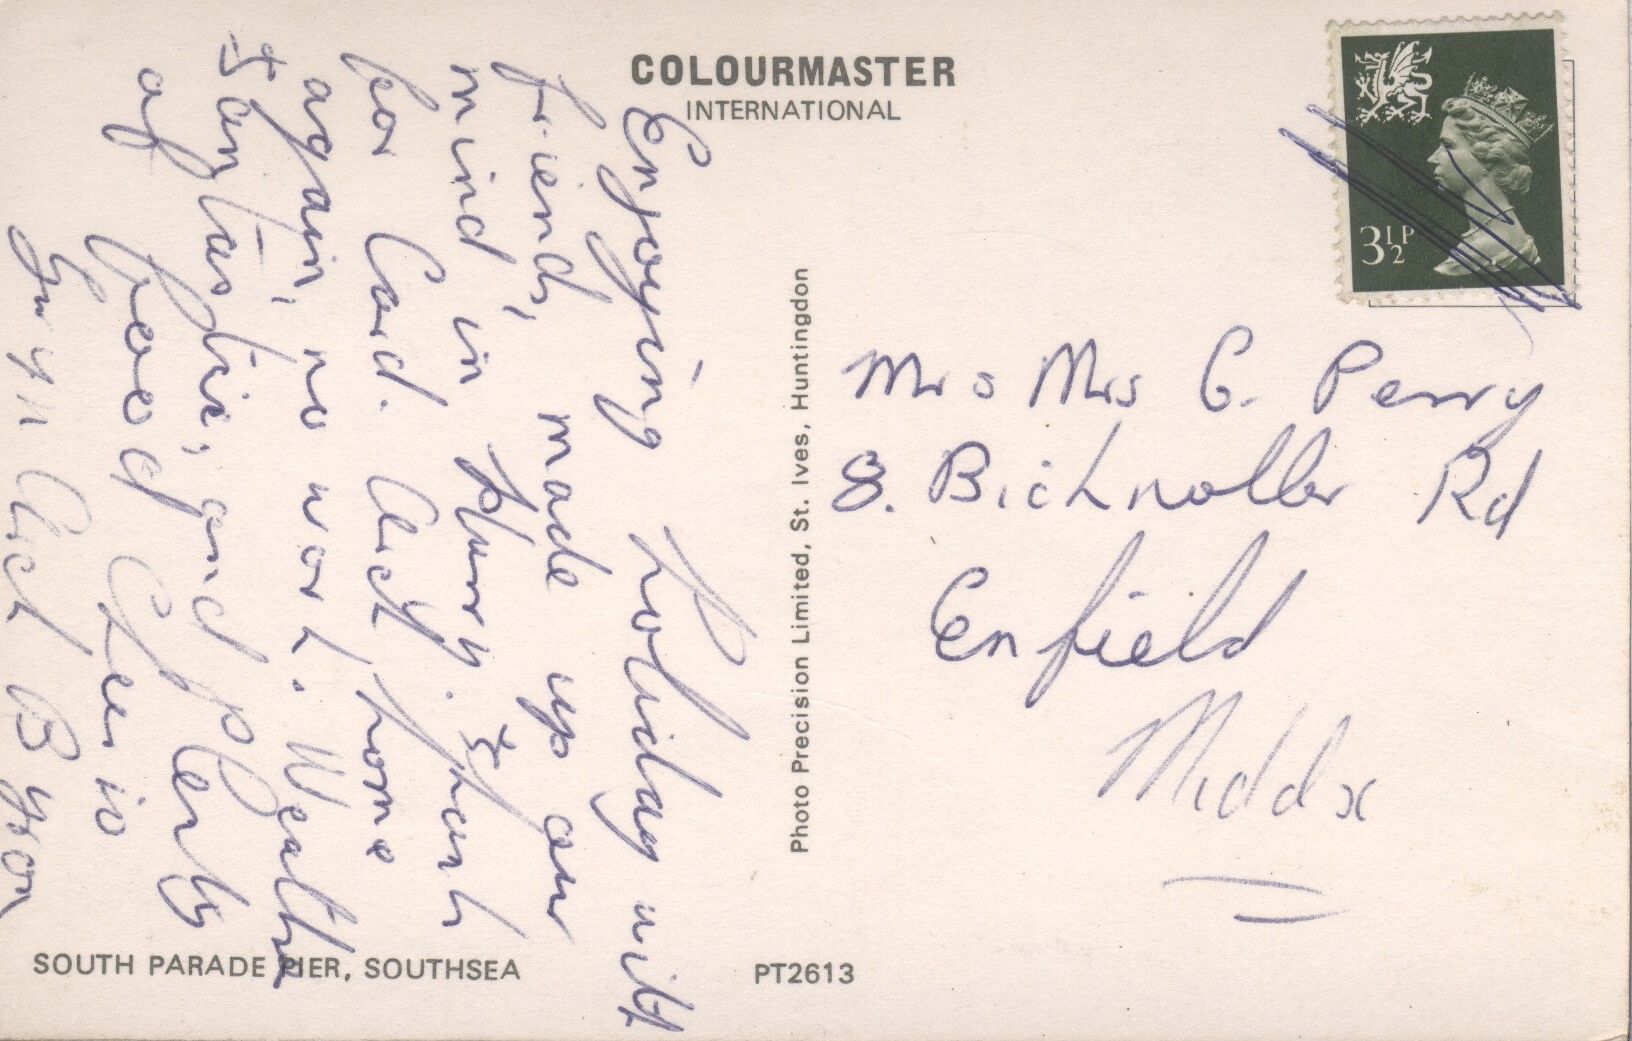 COLOURMASTER
INTERNATIONAL
3½P
Enjoying holiday with
friends, made up our
mind in Hurry. Thank
for Card. home
again, no work. Weather
fantastic, and Plenty
of food
Byron
Photo Precision Limited, St. Ives, Huntingdon
Mr & Mrs G. Perry
8. Bicknoller Rd
Enfield
Middx
SOUTH PARADE PIER, SOUTHSEA
PT2613